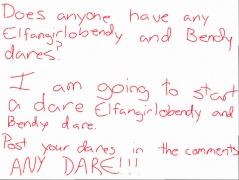 Does anyone have any
Elfangirlobendy and Bendy
dares?
I am going to start
a dare Elfangirlobendy and
Bendy dare.
Post your dares in the comments
ANY DARE!!!